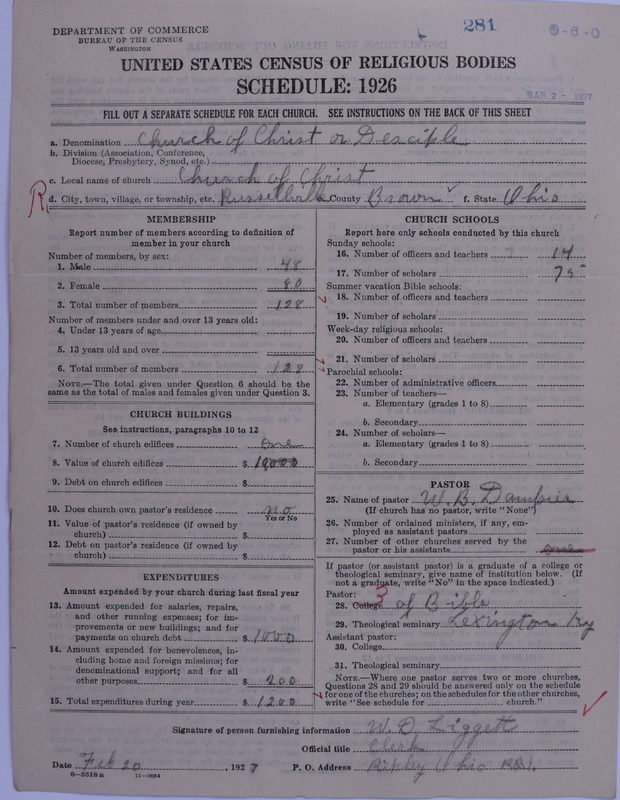 DEPARTMENT OF COMMERCE
BUREAU OF THE CENSUS
WASHINGTON
281
UNITED STATES CENSUS OF RELIGIOUS BODIES
SCHEDULE: 1926
MAR 2 - 1927
FILL OUT A SEPARATE SCHEDULE FOR EACH CHURCH. SEE INSTRUCTIONS ON THE BACK OF THIS SHEET
a. Denomination Church of Christ or Desciple
b. Division (Association, Conference, Diocese, Presbytery, Synod, etc.)
c. Local name of church Church of Christ
d. City, town, village, or township, etc. Russellville e. County Brown f. State Ohio
MEMBERSHIP
Report number of members according to definition of
member in your church
Number of members, by sex:
1. Male 48
2. Female 80
3. Total number of members 128
Number of members under and over 13 years old:
4. Under 13 years of age
5. 13 years old and over
6. Total number of members 128
NOTE.—The total given under Question 6 should be the
same as the total of males and females given under Question 3.
CHURCH BUILDINGS
See instructions, paragraphs 10 to 12
7. Number of church edifices one
8. Value of church edifices $ 10,000
9. Debt on church edifices $
10. Does church own pastor's residence no
Yes or No
11. Value of pastor's residence (if owned by
church) $
12. Debt on pastor's residence (if owned by
church) $
EXPENDITURES
Amount expended by your church during last fiscal year
13. Amount expended for salaries, repairs,
and other running expenses; for im-
provements or new buildings; and for
payments on church debt $ 1000
14. Amount expended for benevolences, in-
cluding home and foreign missions; for
denominational support; and for all
other purposes $ 200
15. Total expenditures during year $ 1200
CHURCH SCHOOLS
Report here only schools conducted by this church
Sunday schools:
16. Number of officers and teachers 14
17. Number of scholars 75
Summer vacation Bible schools:
18. Number of officers and teachers
19. Number of scholars
Week-day religious schools:
20. Number of officers and teachers
21. Number of scholars
Parochial schools:
22. Number of administrative officers
23. Number of teachers—
a. Elementary (grades 1 to 8)
b. Secondary
24. Number of scholars—
a. Elementary (grades 1 to 8)
b. Secondary
PASTOR
25. Name of pastor W. B. Dampier
(If church has no pastor, write "None")
26. Number of ordained ministers, if any, em-
ployed as assistant pastors
27. Number of other churches served by the
pastor or his assistants one
If pastor (or assistant pastor) is a graduate of a college or
theological seminary, give name of institution below. (If
not a graduate, write "No" in the space indicated.)
Pastor:
3
28. College of Bible
29. Theological seminary Lexington Ky
Assistant pastor:
30. College
31. Theological seminary
NOTE.—Where one pastor serves two or more churches,
Questions 28 and 29 should be answered only on the schedule
for one of the churches; on the schedules for the other churches,
write "See schedule for church."
Signature of person furnishing information W. D. Liggett
Official title Clerk
Date Feb 20, 1927 P. O. Address Ripley Ohio
8—5518 a 11—9054